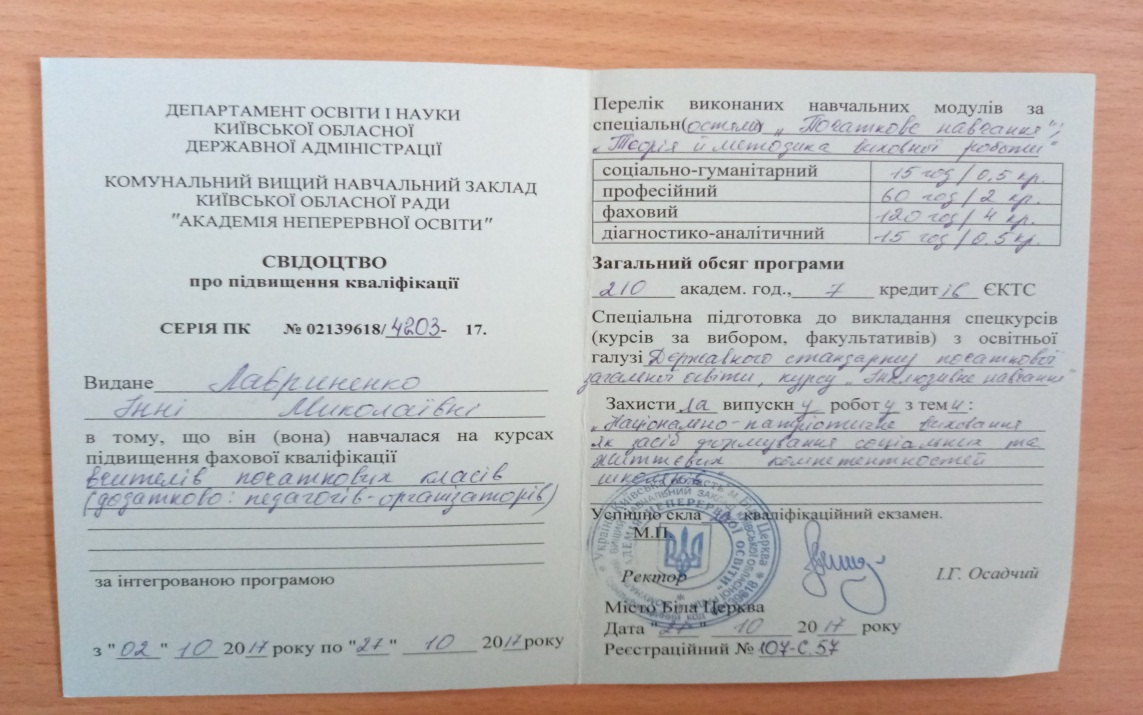 ДЕПАРТАМЕНТ ОСВІТИ І НАУКИ
КИЇВСЬКОЇ ОБЛАСНОЇ
ДЕРЖАВНОЇ АДМІНІСТРАЦІЇ
КОМУНАЛЬНИЙ ВИЩИЙ НАВЧАЛЬНИЙ ЗАКЛАД
КИЇВСЬКОЇ ОБЛАСНОЇ РАДИ
"АКАДЕМІЯ НЕПЕРЕРВНОЇ ОСВІТИ"
СВІДОЦТВО
про підвищення кваліфікації
СЕРІЯ ПК № 02139618/4203- 17.
Видане Лавриненко
Інні Миколаївні
в тому, що він (вона) навчалася на курсах
підвищення фахової кваліфікації
вчителів початкових класів
(додатково: педагогів-організаторів)
за інтегрованою програмою
з "02" 10 2017 року по "27" 10 2017 року
Перелік виконаних навчальних модулів за
спеціальн(остями) „Початкове навчання";
„Теорія й методика виховної роботи"
соціально-гуманітарний 15 год/0,5 кр.
професійний 60 год/2 кр.
фаховий 120 год/4 кр.
діагностико-аналітичний 15 год/0,5 кр.
Загальний обсяг програми
210 академ. год., 7 кредитів ЄКТС
Спеціальна підготовка до викладання спецкурсів
(курсів за вибором, факультативів) з освітньої
галузі Державного стандарту початкової
загальної освіти, курсу „Інклюзивне навчання"
Захистила випускну роботу з теми:
„Національно-патріотичне виховання
як засіб формування соціальних та
життєвих компетентностей
школярів"
Успішно склала кваліфікаційний екзамен.
М.П.
Ректор І.Г. Осадчий
Місто Біла Церква
Дата "27" 10 2017 року
Реєстраційний № 107-С.57